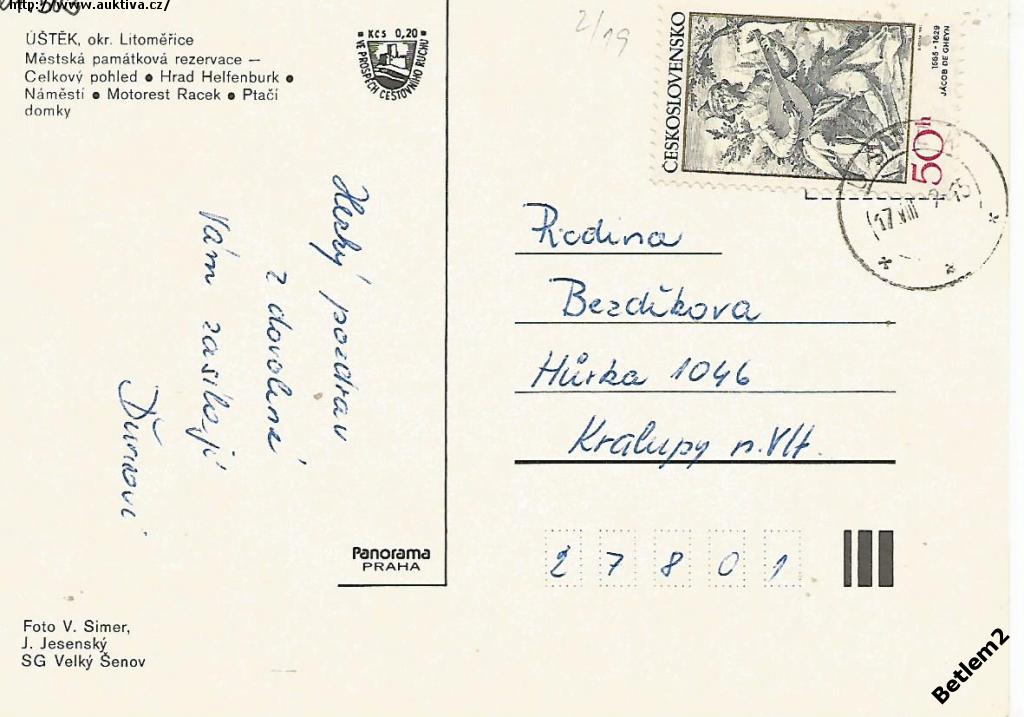 http://www.auktiva.cz/
ÚŠTĚK, okr. Litoměřice
Městská památková rezervace –
Celkový pohled ● Hrad Helfenburk ●
Náměstí ● Motorest Racek ● Ptačí
domky
Kčs 0,20
VE PROSPĚCH CESTOVNÍHO RUCHU
2/19
ČESKOSLOVENSKO
1565 - 1629
JACOB DE GHEYN
50h
17 VIII
Hezký pozdrav
z dovolené
Vám zasílají
Ďurinovi
Rodina
Bezdíkova
Hůrka 1046
Kralupy n.Vlt.
27801
Panorama
PRAHA
Foto V. Simer,
J. Jesenský
SG Velký Šenov
Betlem2